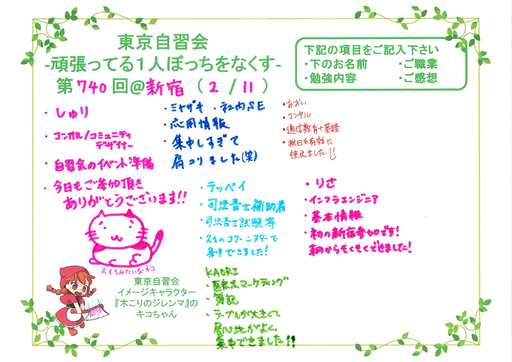 東京自習会
-頑張ってる1人ぼっちをなくす-
第740回@新宿（2/11）
下記の項目をご記入下さい
・下のお名前 ・ご職業
・勉強内容 ・ご感想
・しゅり
・コンサル/コミュニティ
デザイナー
・自習会のイベント準備
・今日もご参加頂き
ありがとうございます!!
・ミヤザキ ・社内SE
・応用情報
・集中しすぎて
肩コリました(笑)
・コンサル
・通信教育+英語
・祝日を有効に
使えました!!
・テッペイ
・司法書士補助者
・司法書士試験等
集中できました!
・りさ
・インフラエンジニア
・基本情報
・初の新宿参加です!
朝からもくもくできました!
KAORI
・マーケティング
・簿記
・テーブルが大きくて
居心地がよく、
集中できました!!
東京自習会
イメージキャラクター
『木こりのジレンマ』の
キコちゃん